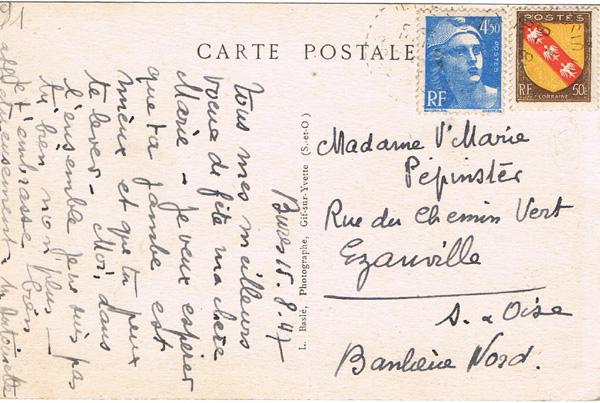 CARTE POSTALE
4,50
POSTES
RF
POSTES
RF
LORRAINE
50c
Bures 15.8.47
Tous mes meilleurs
voeux de fête ma chère
Marie - je veux espérer
que ta jambe est
mieux et que tu peux
te lever - Moi, dans
l'ensemble je ne suis pas
bien non plus -
Je t'embrasse bien
affectueusement.
Antoinette
L. Baslé, Photographe, Gif-sur-Yvette (S.-et-O)
Madame Vve Marie
Pépinster
Rue du Chemin Vert
Ezanville
S. & Oise
Banlieue Nord.